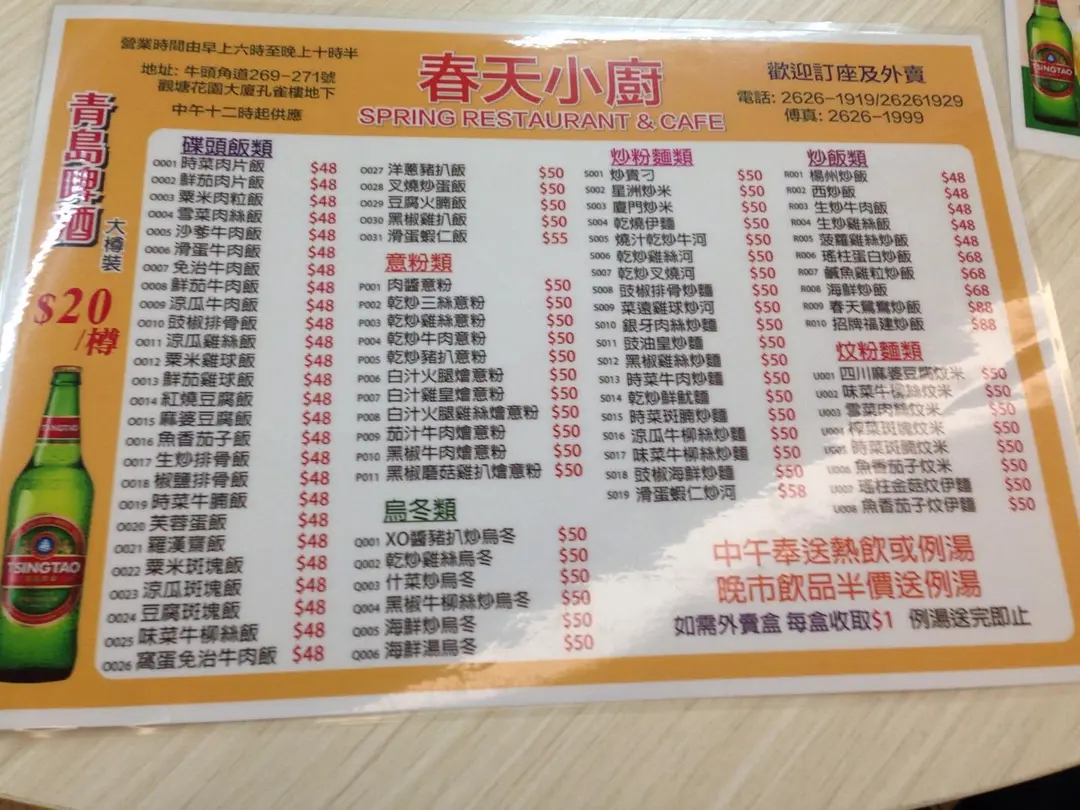 營業時間由早上六時至晚上十時半
地址: 牛頭角道269-271號
觀塘花園大廈孔雀樓地下
中午十二時起供應
春天小廚
SPRING RESTAURANT & CAFE
歡迎訂座及外賣
電話: 2626-1919/26261929
傳真: 2626-1999
青島啤酒
大樽裝
$20
/樽
TSINGTAO
TSINGTAO
碟頭飯類
O001 時菜肉片飯 $48
O002 鮮茄肉片飯 $48
O003 粟米肉粒飯 $48
O004 雪菜肉絲飯 $48
O005 沙爹牛肉飯 $48
O006 滑蛋牛肉飯 $48
O007 免治牛肉飯 $48
O008 鮮茄牛肉飯 $48
O009 涼瓜牛肉飯 $48
O010 豉椒排骨飯 $48
O011 涼瓜雞絲飯 $48
O012 粟米雞球飯 $48
O013 鮮茄雞球飯 $48
O014 紅燒豆腐飯 $48
O015 麻婆豆腐飯 $48
O016 魚香茄子飯 $48
O017 生炒排骨飯 $48
O018 椒鹽排骨飯 $48
O019 時菜牛腩飯 $48
O020 芙蓉蛋飯 $48
O021 羅漢齋飯 $48
O022 粟米斑塊飯 $48
O023 涼瓜斑塊飯 $48
O024 豆腐斑塊飯 $48
O025 味菜牛柳絲飯 $48
O026 窩蛋免治牛肉飯 $48
O027 洋蔥豬扒飯 $50
O028 叉燒炒蛋飯 $50
O029 豆腐火腩飯 $50
O030 黑椒雞扒飯 $50
O031 滑蛋蝦仁飯 $55
意粉類
P001 肉醬意粉 $50
P002 乾炒三絲意粉 $50
P003 乾炒雞絲意粉 $50
P004 乾炒牛肉意粉 $50
P005 乾炒豬扒意粉 $50
P006 白汁火腿燴意粉 $50
P007 白汁雞皇燴意粉 $50
P008 白汁火腿雞絲燴意粉 $50
P009 茄汁牛肉燴意粉 $50
P010 黑椒牛肉燴意粉 $50
P011 黑椒磨菇雞扒燴意粉 $50
烏冬類
Q001 XO醬豬扒炒烏冬 $50
Q002 乾炒雞絲烏冬 $50
Q003 什菜炒烏冬 $50
Q004 黑椒牛柳絲炒烏冬 $50
Q005 海鮮炒烏冬 $50
Q006 海鮮湯烏冬 $50
炒粉麵類
S001 炒貴刁 $50
S002 星洲炒米 $50
S003 廈門炒米 $50
S004 乾燒伊麵 $50
S005 燒汁乾炒牛河 $50
S006 乾炒雞絲河 $50
S007 乾炒叉燒河 $50
S008 豉椒排骨炒麵 $50
S009 菜遠雞球炒河 $50
S010 銀牙肉絲炒麵 $50
S011 豉油皇炒麵 $50
S012 黑椒雞絲炒麵 $50
S013 時菜牛肉炒麵 $50
S014 乾炒鮮魷麵 $50
S015 時菜斑腩炒麵 $50
S016 涼瓜牛柳絲炒麵 $50
S017 味菜牛柳絲炒麵 $50
S018 豉椒海鮮炒麵 $50
S019 滑蛋蝦仁炒河 $58
炒飯類
R001 楊州炒飯 $48
R002 西炒飯 $48
R003 生炒牛肉飯 $48
R004 生炒雞絲飯 $48
R005 菠蘿雞絲炒飯 $48
R006 瑤柱蛋白炒飯 $68
R007 鹹魚雞粒炒飯 $68
R008 海鮮炒飯 $68
R009 春天鴛鴦炒飯 $88
R010 招牌福建炒飯 $88
炆粉麵類
U001 四川麻婆豆腐炆米 $50
U002 味菜牛柳絲炆米 $50
U003 雪菜肉絲炆米 $50
U004 榨菜斑塊炆米 $50
U005 時菜斑腩炆米 $50
U006 魚香茄子炆米 $50
U007 瑤柱金菇炆伊麵 $50
U008 魚香茄子炆伊麵 $50
中午奉送熱飲或例湯
晚市飲品半價送例湯
如需外賣盒 每盒收取$1 例湯送完即止